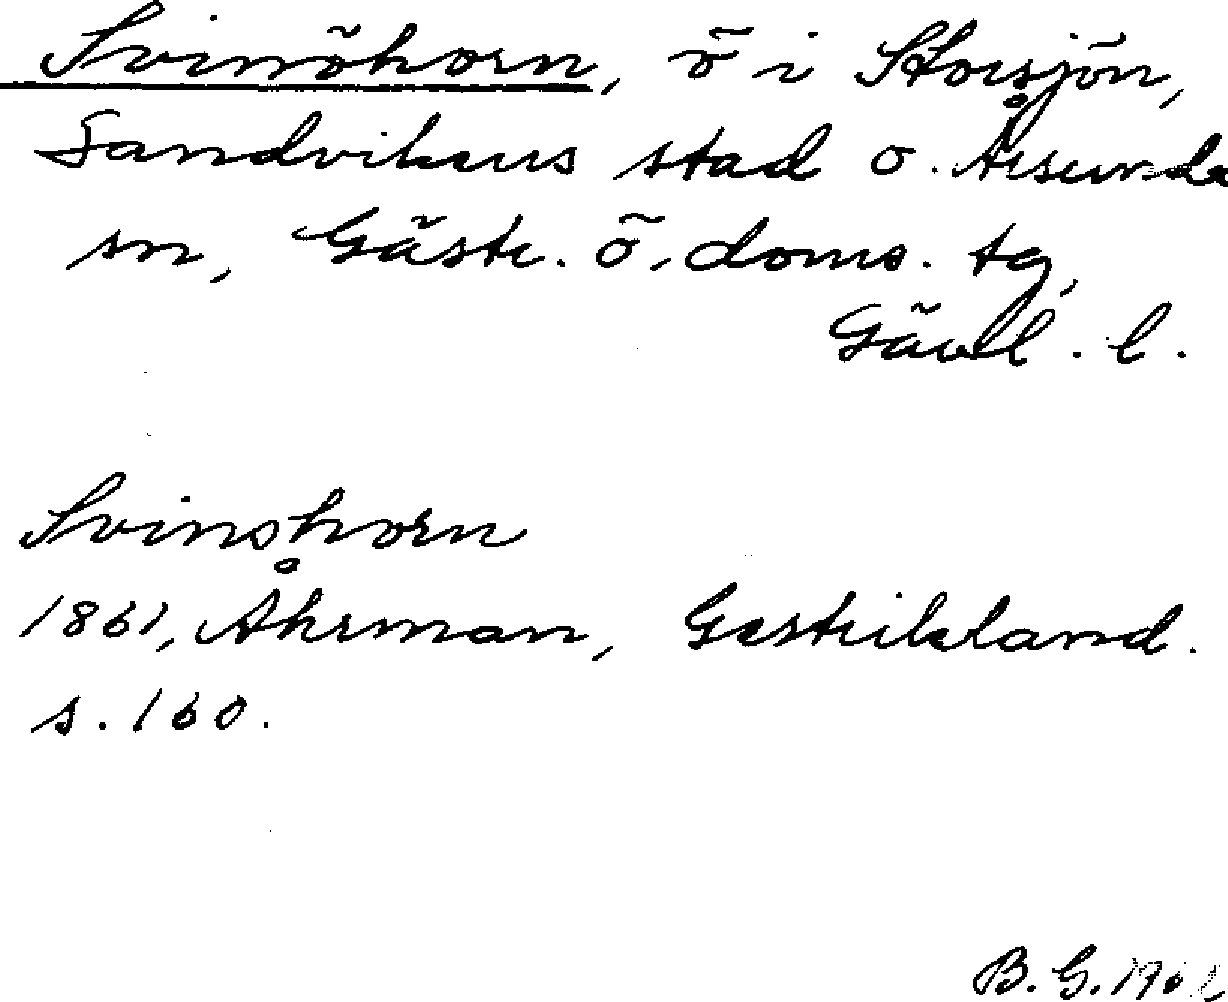 Svinöhorn, ö i Storsjön,
Sandvikens stad o. Årsunda
sn, Gästr. ö. doms. tg,
Gävl. l.
Svinöhorn
1861, Åhrman, Gestrikland.
s. 160.
B. G.